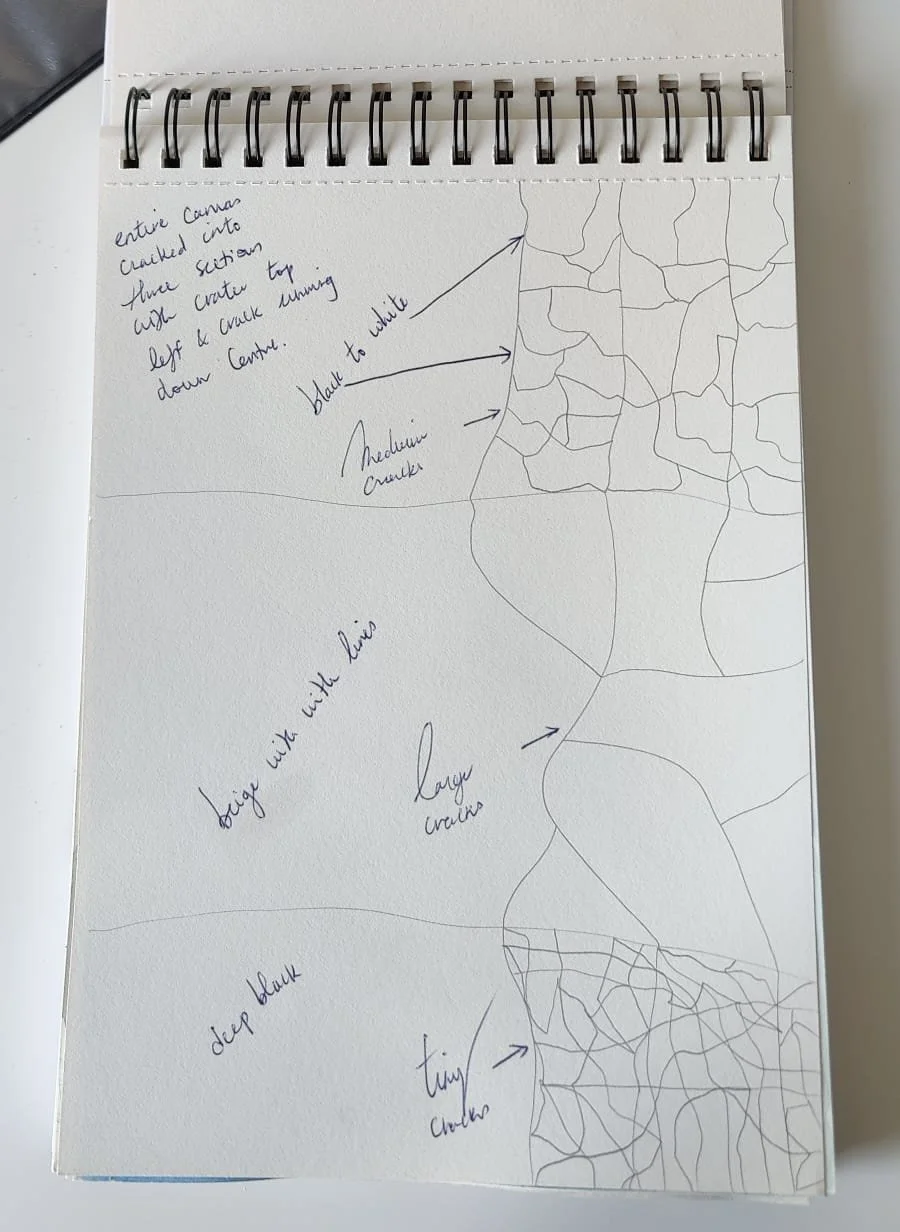 entire canvas
cracked into
three sections
with crater top
left & crack running
down Centre.
black to white
Medium
cracks
beige with with lines
large
cracks
deep black
tiny
cracks